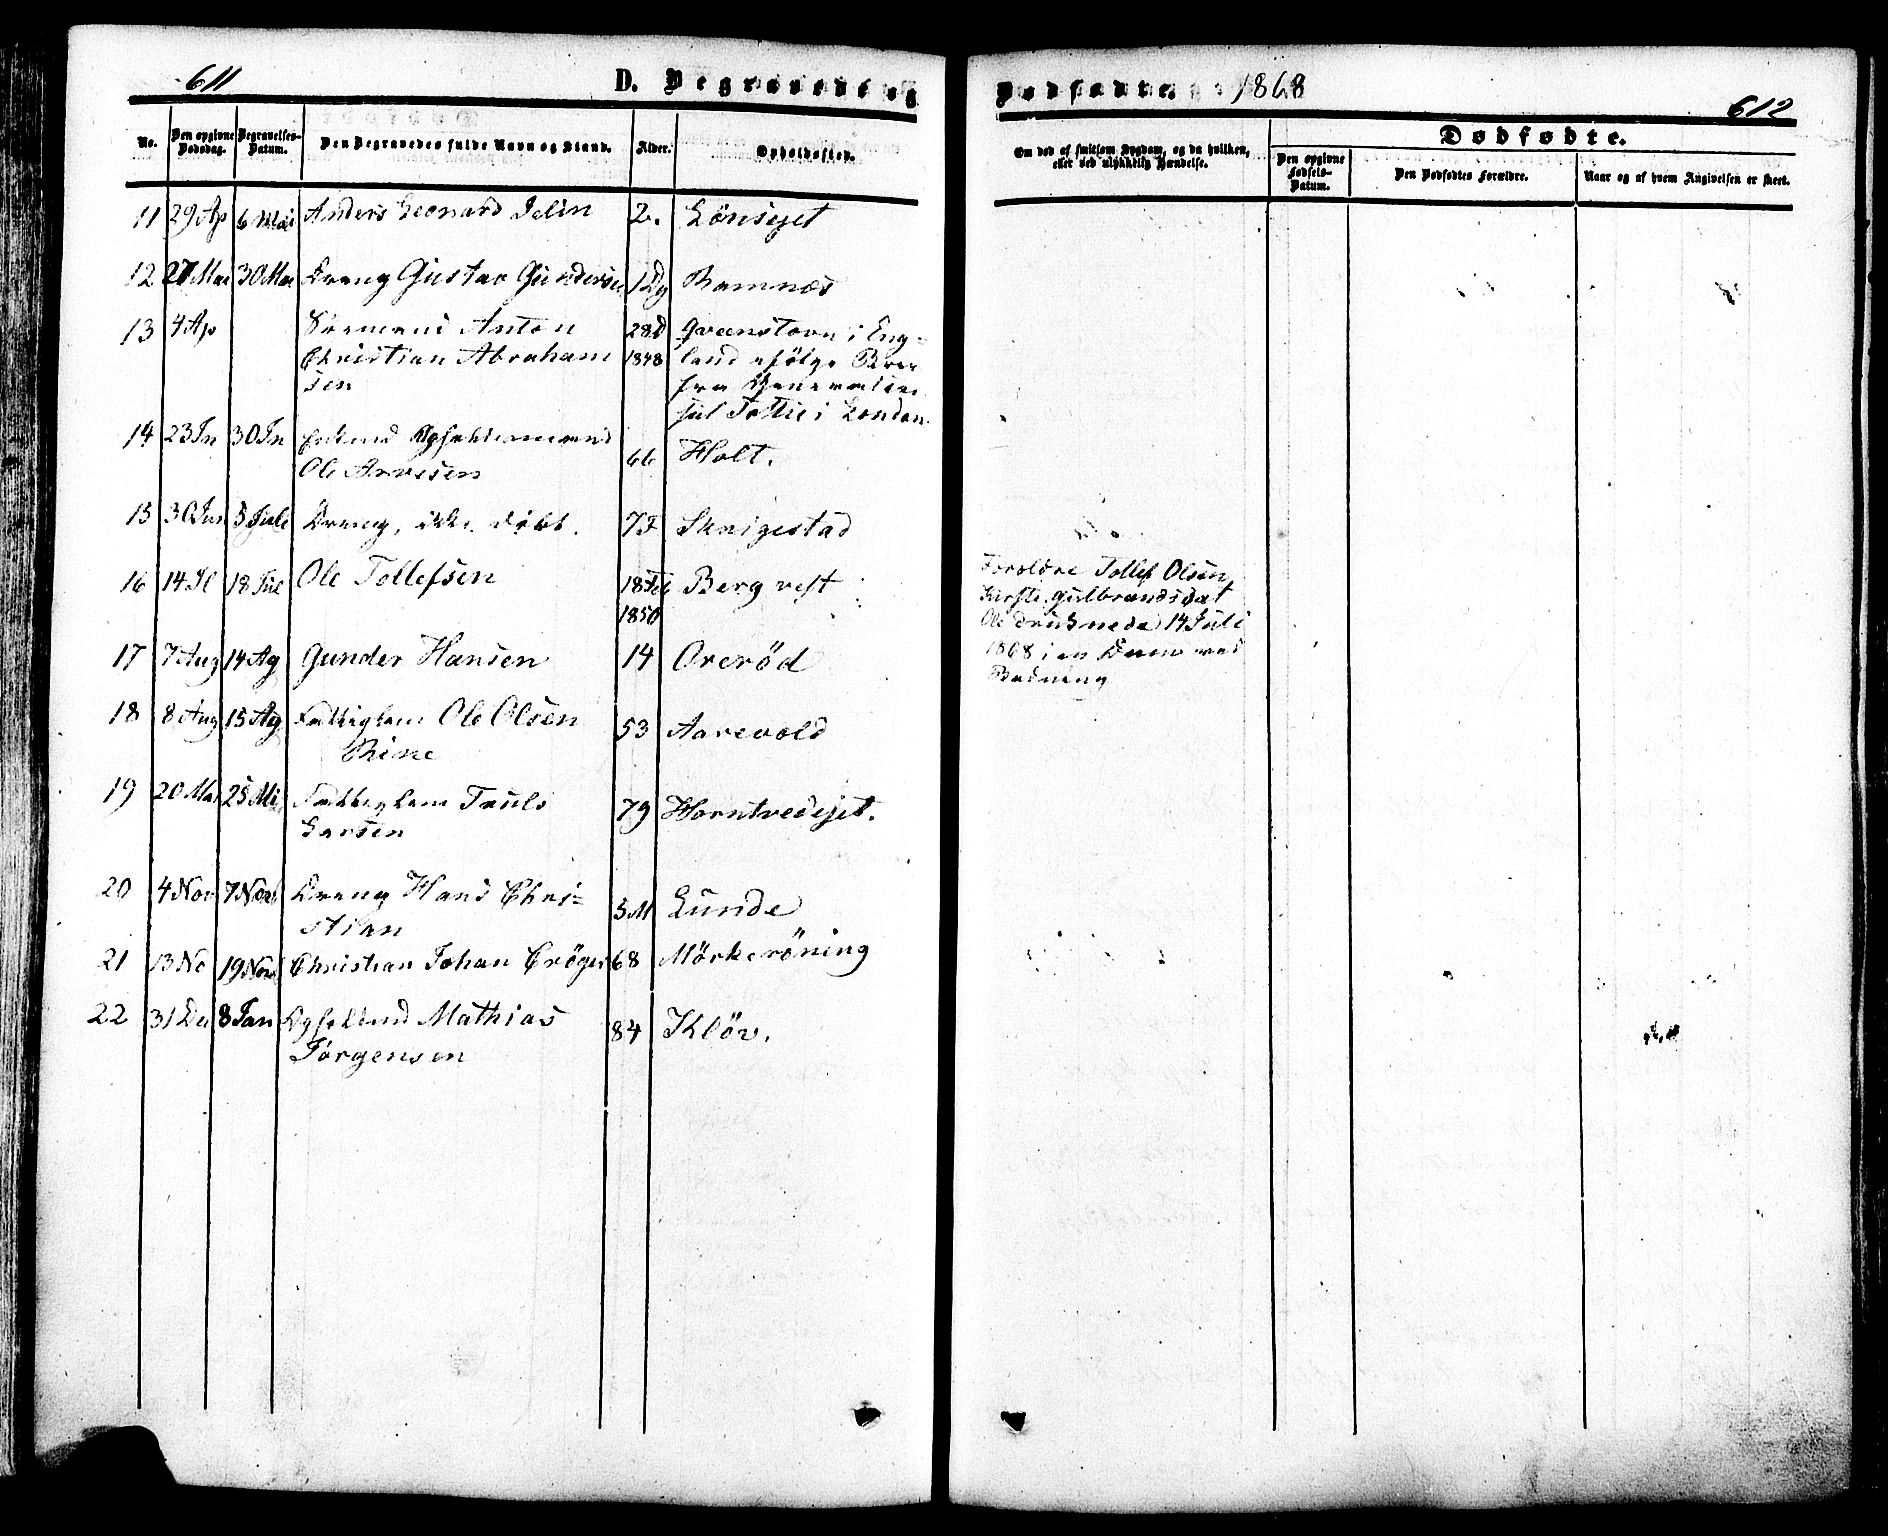 611
D. Begravede og
Dødfødte. 1868
612
No.
Den opgivne Dødsdag.
Begravelses-Datum.
Den Begravedes fulde Navn og Stand.
Alder.
Opholdssted.
Om død af smitsom Sygdom, og da hvilken, eller ved ulykkelig Hændelse.
Dødfødte.
Den opgivne Fødsels-Datum.
Den Dødfødtes Forældre.
Naar og af hvem Angivelsen er skeet.
11 29 Ap 6 Mai Anders Leonard 2. Lönsejet
12 27 Mai 30 Mai Dreng Gustav Gundersen 1 Dg Ramnæs
13 4 Ap Sømand Anton 28 D Queenstown i Eng-
Christian Abraham 1848 land ifölge Brev
sen fra Generalkon
sul Tottie i London.
14 23 Jn 30 Jn
Ole Arvesen 66 Holt.
15 30 Jun 5 Juli Dreng, ikke døbt. 7 T Skrigestad
16 14 Jl 18 Jul Ole Tollefsen 18 Feb Berg vest
1850
Forældre Tollef Olsen
Kirsti Gulbrandsdat
Ole druknede 14 Juli
1868 i en Dam ved
Badning
17 7 Aug 14 Ag Gunder Hansen 14 Overöd
18 8 Aug 15 Ag Fattiglem Ole Olsen
53 Aarevold
19 20 Mai 25 Mi Fattiglem Truls
Larsen 79 Horntvedejet.
20 4 Nov 7 Nov Dreng Hans Chri-
stian 5 M Lunde
21 13 No 19 Nov Christian Johan Cröger 68 Mörkeröning
22 31 De 8 Jan Mathias
Jörgensen 84 Klöv.